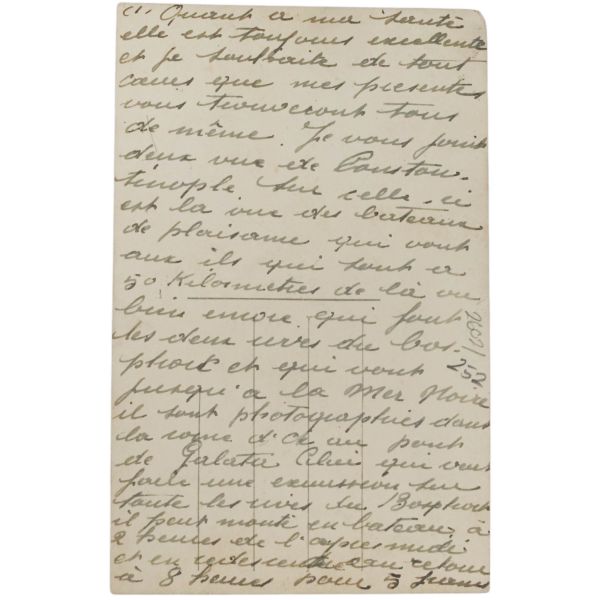 Quant a ma santé
elle est toujours excellente
et je souhaite de tout
cœur que mes presentes
vous trouveront tous
de même. Je vous joint
deux vue de Constan-
tinople sur celle-ci
est la vue des bateaux
de plaisame qui vont
aux ils qui sont a
50 Kilometres de là ou
bien encore qui font
les deux rives du bos-
phore et qui vont
jusqu'a la Mer Noire
il sont photographies dans
la corne d'Or au pont
de Galata Celui qui veut
faile une excursion sur
toute les rives du Bosphore
il peut monté en bateau, à
2 heures de l'apres midi
et en redescendre au retour
à 8 heures pour 5 francs
252